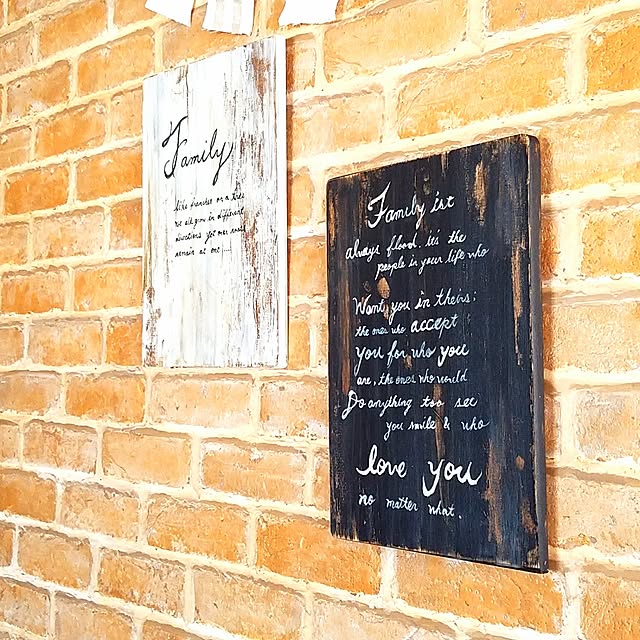 Family
Like branches on a tree
we all grow in different
directions yet our roots
remain as one ....
Family ist
always flood. it's the
people in your life who
Want you in theirs:
the ones who accept
you for who you
are, the ones who would
Do anything too see
you smile & who
love you
no matter what.